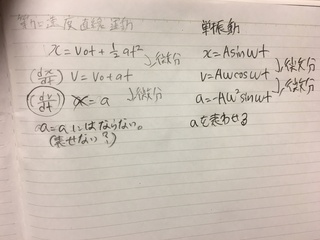 等加速度直線運動
x = v₀t + ½at²
↓微分
(dx/dt) v = v₀ + at
↓微分
(dv/dt) = a
a=aにはならない。
(表せない??)
単振動
x = Asinωt
↓微分
v = Aωcosωt
↓微分
a = -Aω²sinωt
aを表わせる